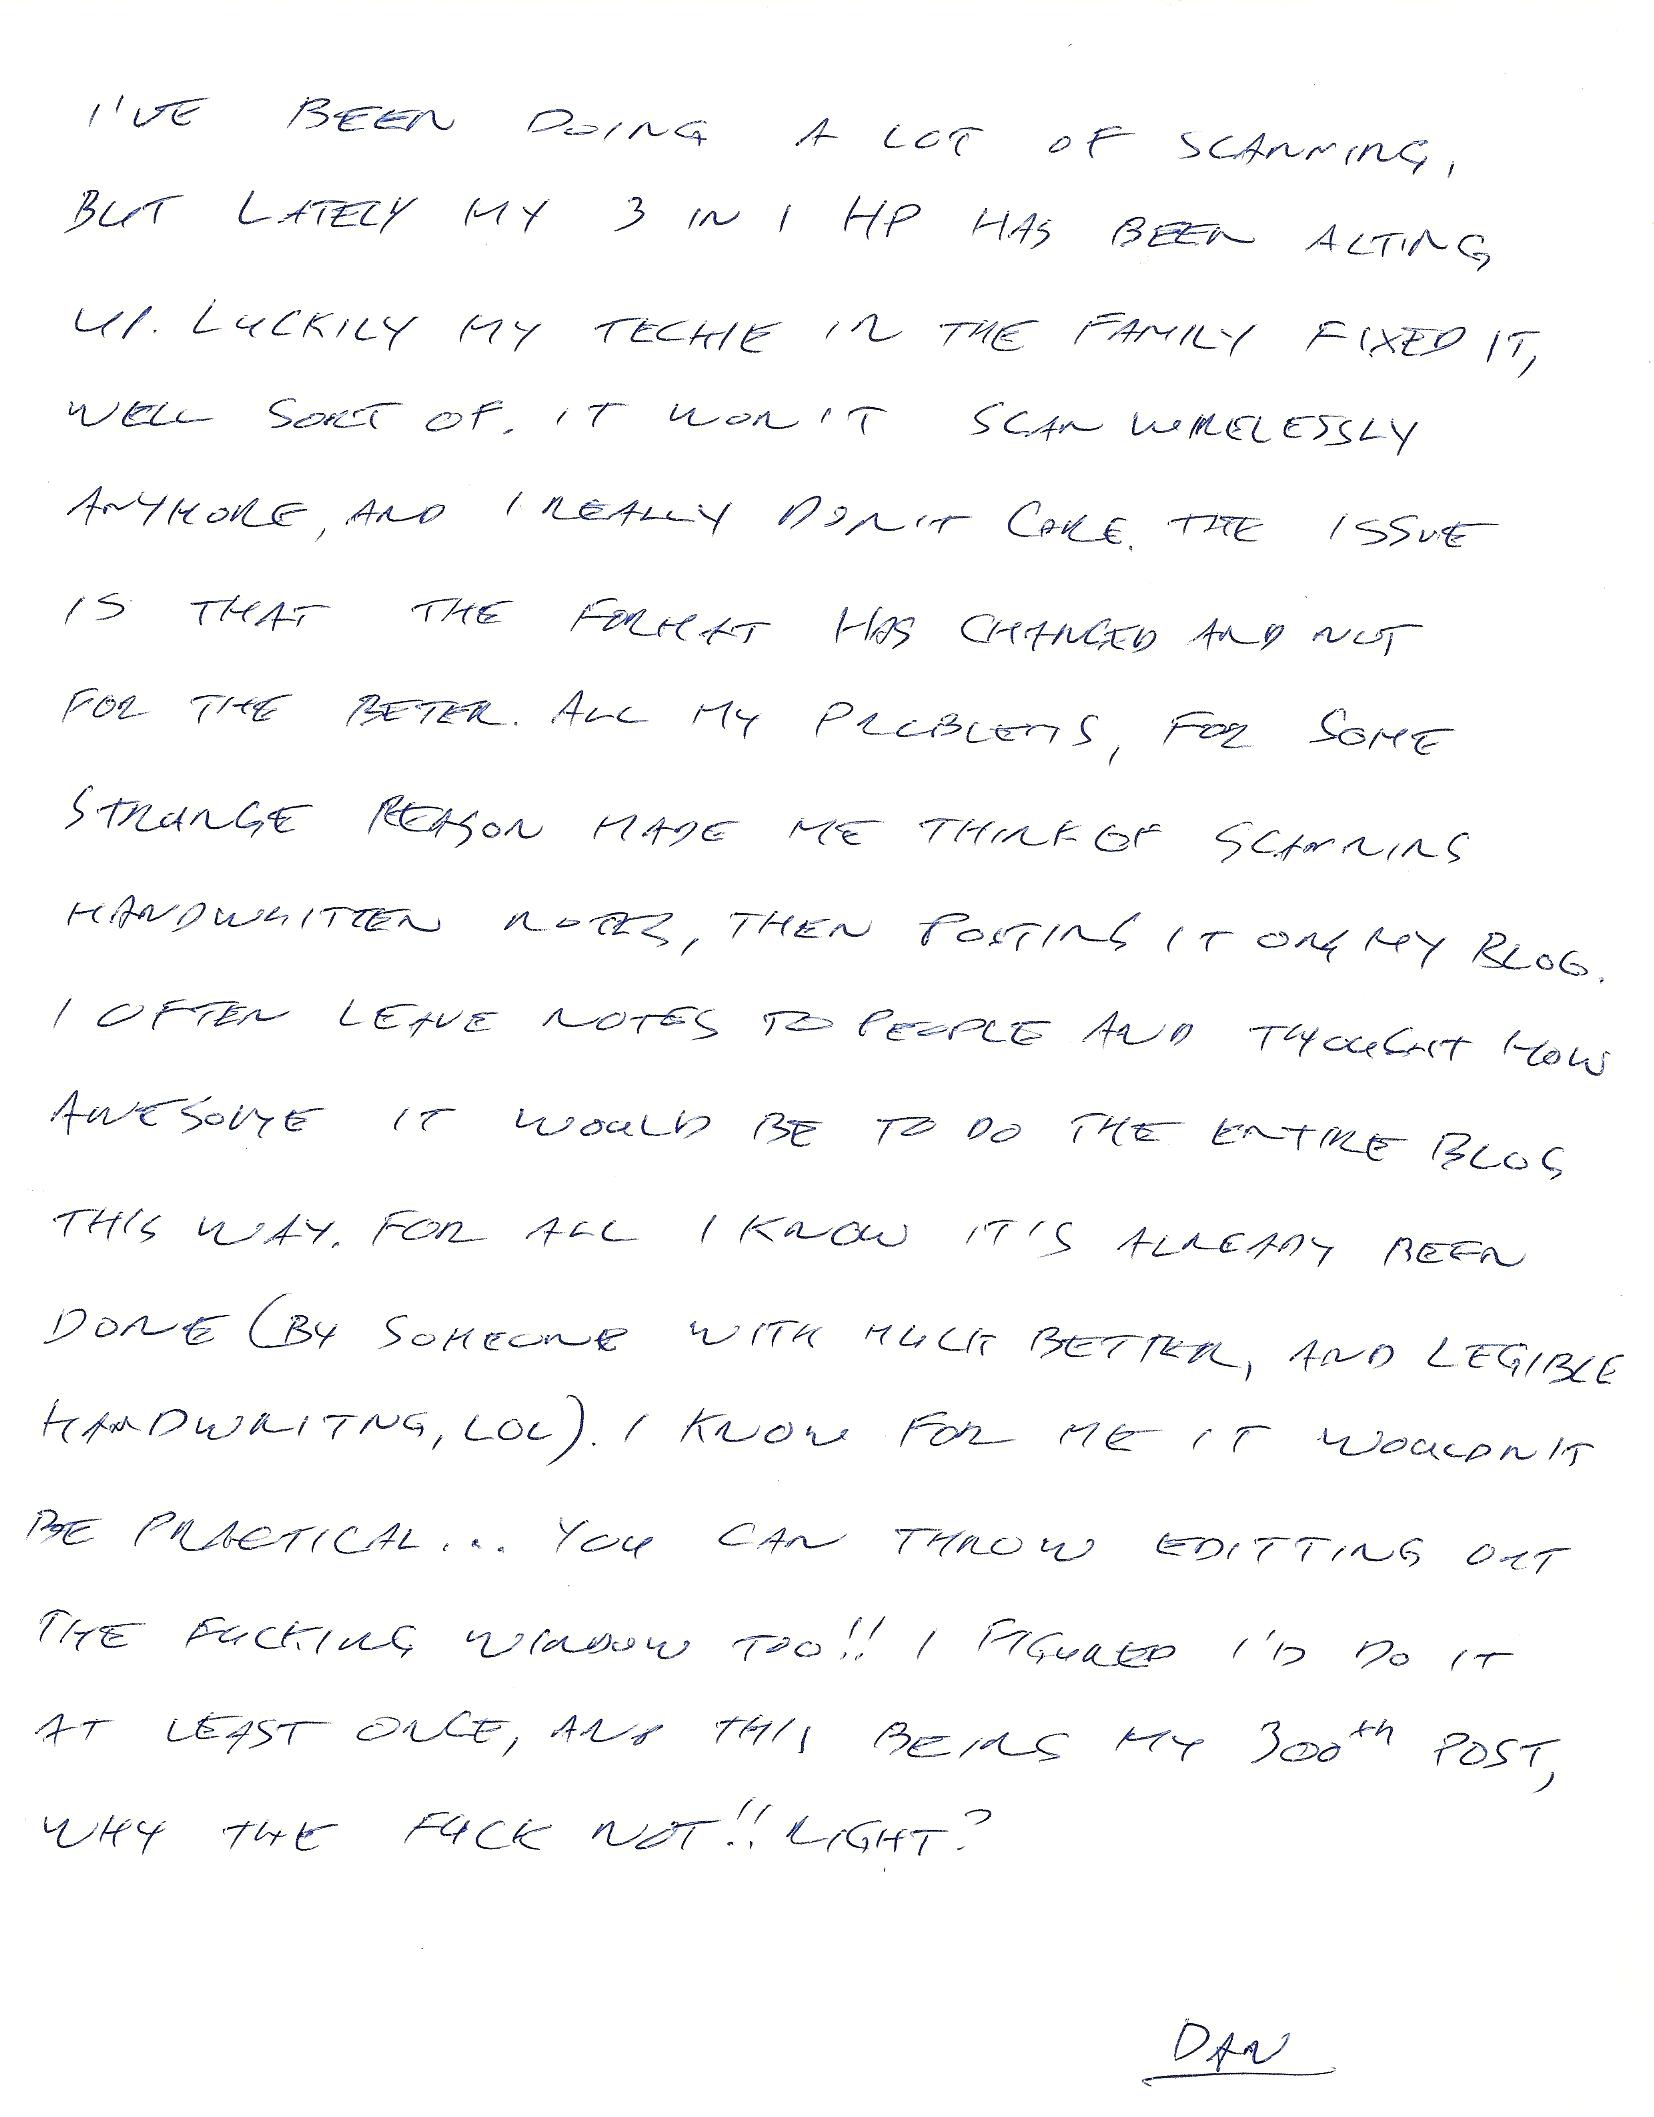 I'VE BEEN DOING A LOT OF SCANNING,
BUT LATELY MY 3 IN 1 HP HAS BEEN ACTING
UP. LUCKILY MY TECHIE IN THE FAMILY FIXED IT,
WELL SORT OF. IT WON'T SCAN WIRELESSLY
ANYMORE, AND I REALLY DON'T CARE. THE ISSUE
IS THAT THE FORMAT HAS CHANGED AND NOT
FOR THE BETER. ALL MY PROBLEMS, FOR SOME
STRANGE REASON MADE ME THINK OF SCANNING
HANDWRITTEN NOTES, THEN POSTING IT ON MY BLOG.
I OFTEN LEAVE NOTES TO PEOPLE AND THOUGHT HOW
AWESOME IT WOULD BE TO DO THE ENTIRE BLOG
THIS WAY. FOR ALL I KNOW IT'S ALREADY BEEN
DONE (BY SOMEONE WITH MUCH BETTER, AND LEGIBLE
HANDWRITNG, LOL). I KNOW FOR ME IT WOULDN'T
BE PRACTICAL... YOU CAN THROW EDITTING OUT
THE FUCKING WINDOW TOO!! I FIGURED I'D DO IT
AT LEAST ONCE, AND THIS BEING MY 300th POST,
WHY THE FUCK NOT!! RIGHT?
DAN